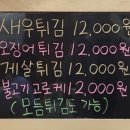 새우튀김 12,000원
오징어튀김 12,000원
게살튀김 12,000원
불고기고로케 12,000원
(모듬튀김도 가능)